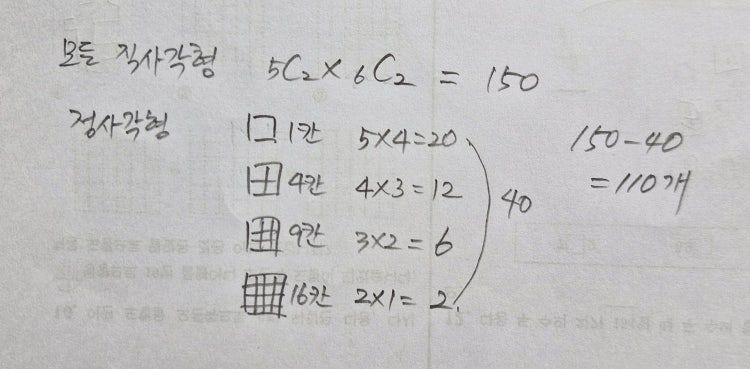 모든 직사각형 5C2 × 6C2 = 150
정사각형 1칸 5×4=20
4칸 4×3=12
9칸 3×2=6
16칸 2×1=2
40
150-40
=110개